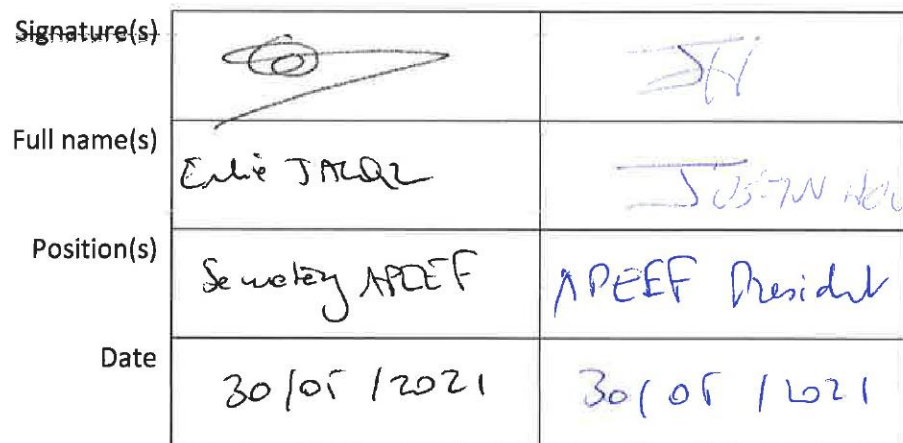 Signature(s)
JH
Full name(s)
JUSTIN
Position(s)
Secretary APEEF
APEEF President
Date
30/05/2021
30/05/2021